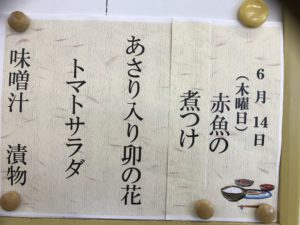 6月14日
（木曜日）
赤魚の
煮つけ
あさり入り卯の花
トマトサラダ
味噌汁　漬物